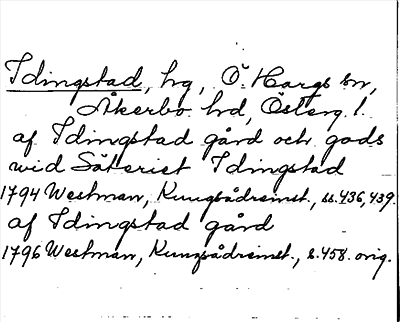 Idingstad, hg, Ö. Hargs sn,
Åkerbo hd, Österg. l.
af Idingstad gård och gods
wid Säteriet Idingstad
1794 Westman, Kungsådreinst., ss. 436, 439.
af Idingstad gård
1796 Westman, Kungsådreinst., s. 458. orig.